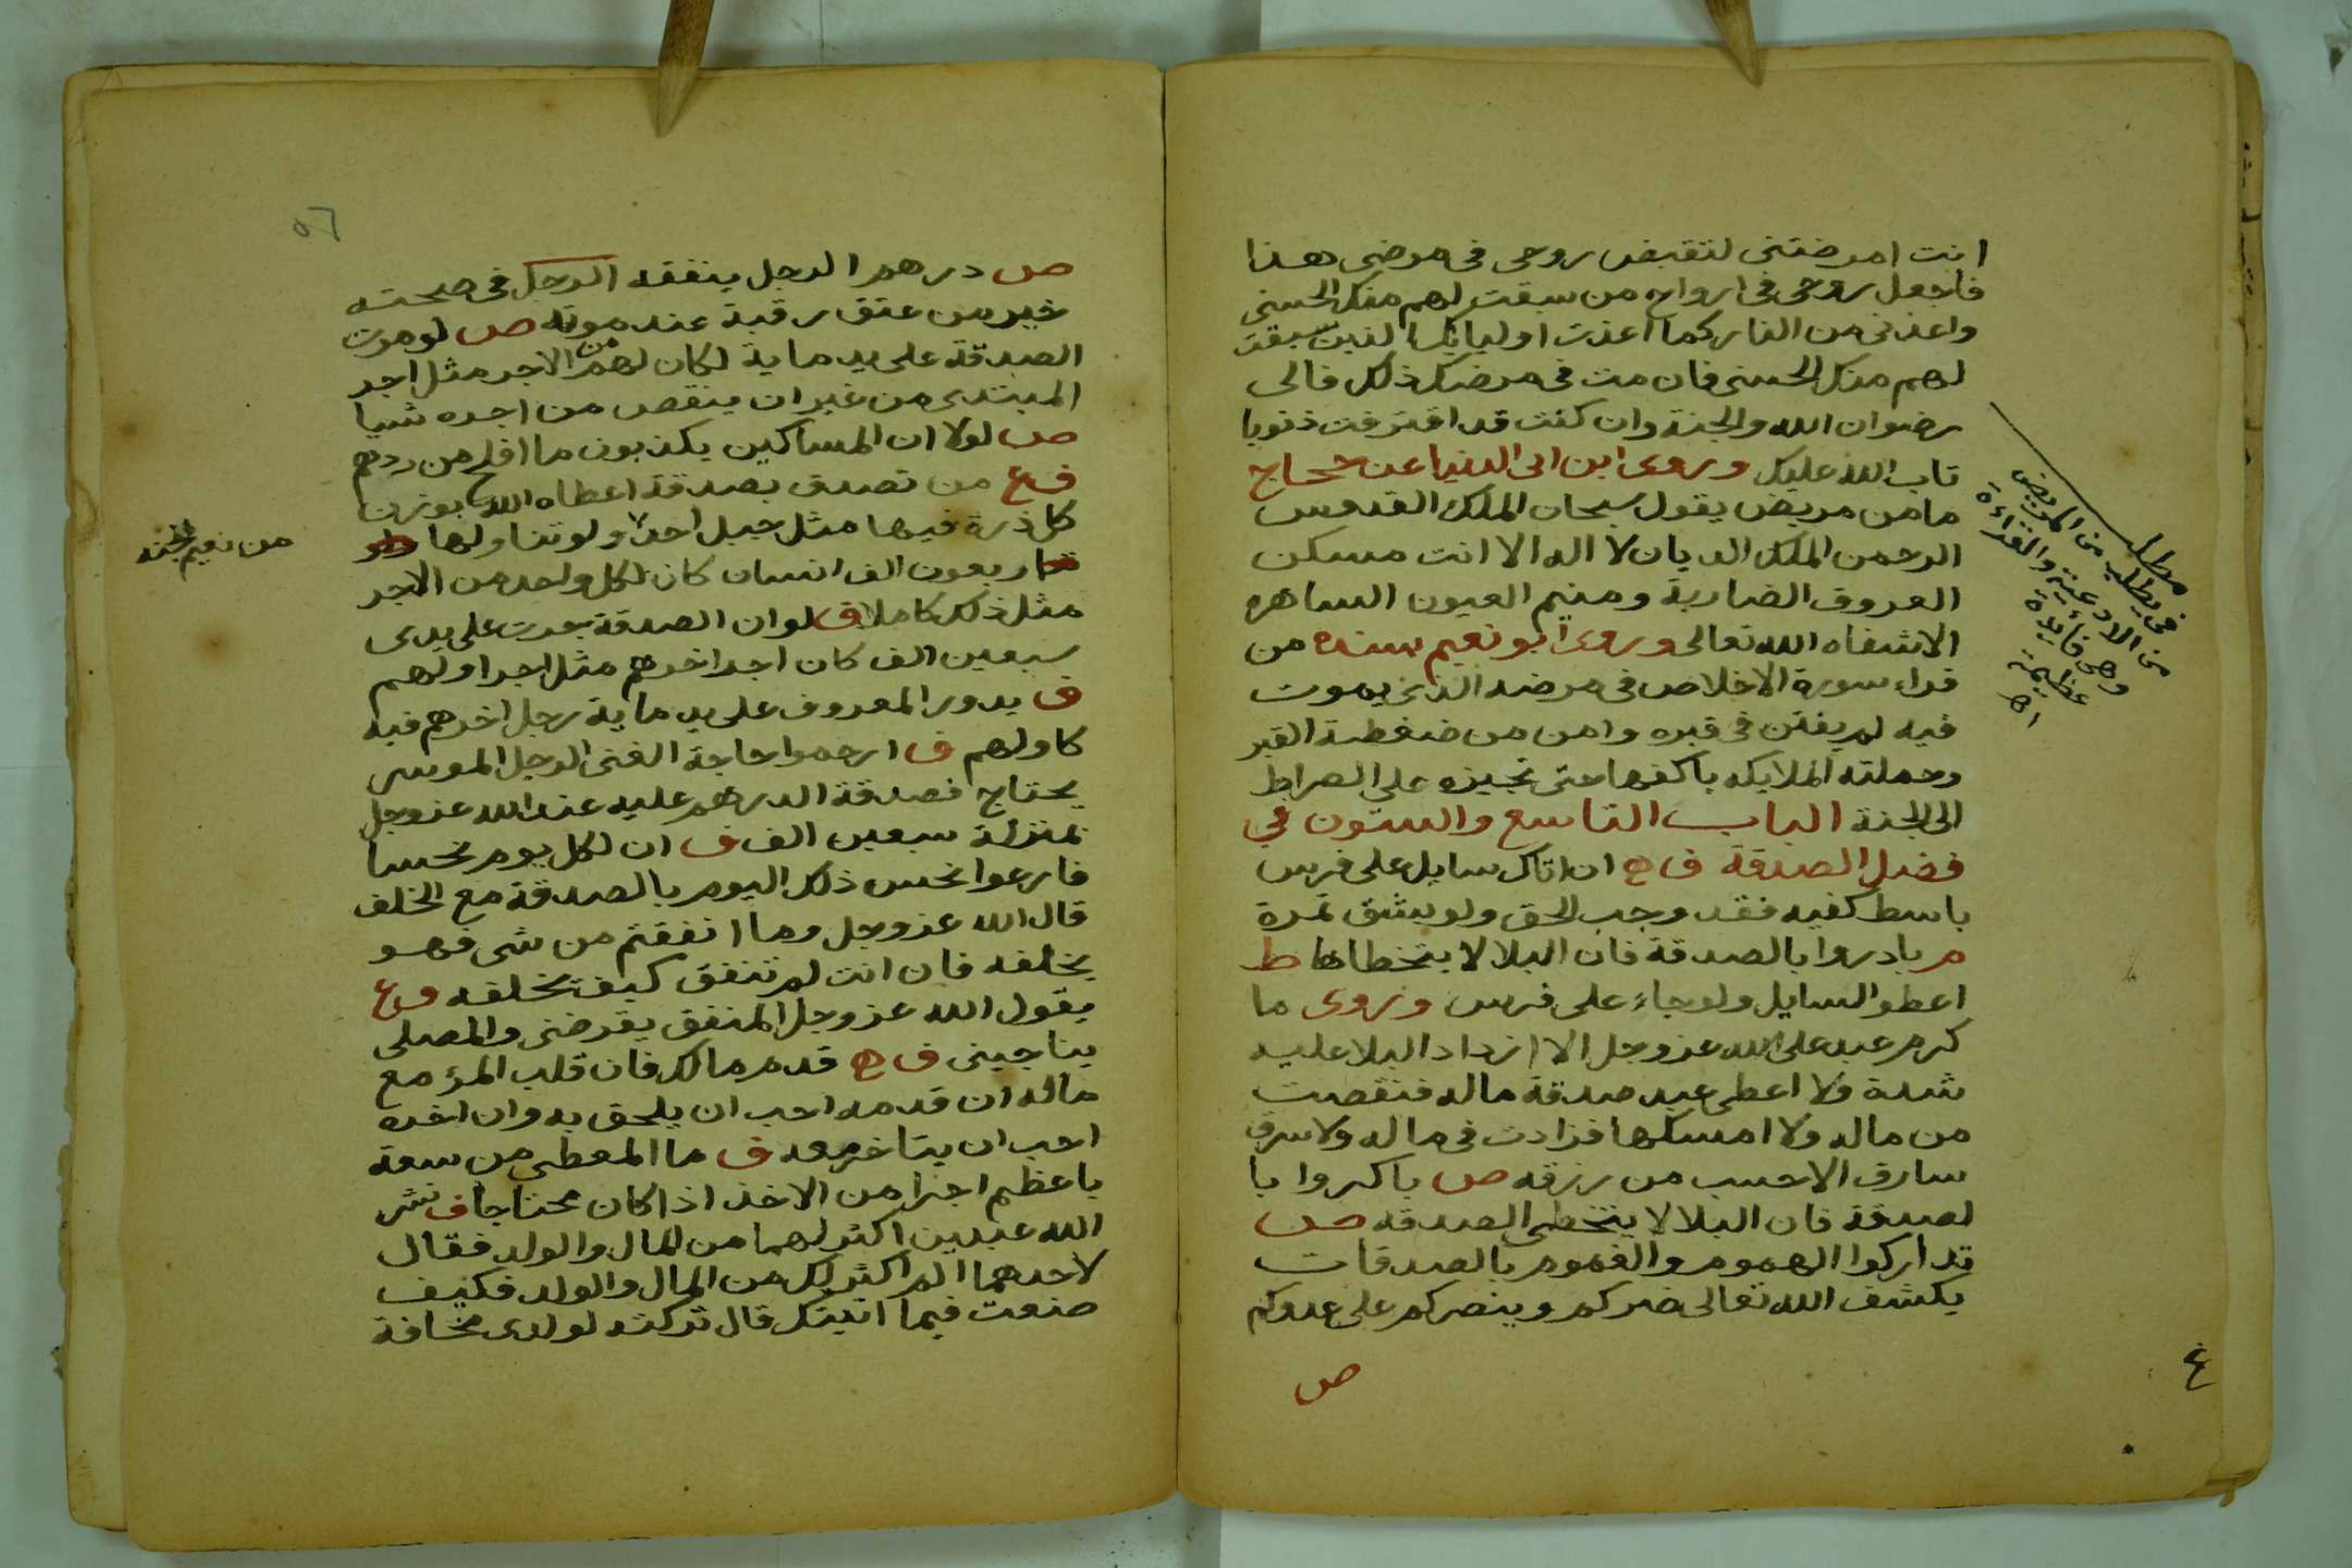 انت امرضتنى لتقبض روحى فى مرضى هذا
فاجعل روحى فى ارواح من سبقت لهم منك الحسنى
واعذنى من النار كما اعذت اوليايك الذين سبقت
لهم منك الحسنى فان مت فى مرضك ذلك فالى
رضوان الله والجنة وان كنت قد اقترفت ذنوبا
تاب الله عليك وروى ابن ابى الدنيا عن حجاج
مامن مريض يقول سبحان الملك القدوس
الرحمن الملك الديان لا اله الا انت مسكن
العروق الضاربة ومنيم العيون الساهره
الاشفاه الله تعالى وروى ابو نعيم سنده من
قراء سورة الاخلاص فى مرضه الذى يموت
فيه لم يفتن فى قبره وامن من ضغطة القبر
وحملته الملايكه باكفها حتى تجيزه على الصراط
الى الجنة الباب التاسع والستون في
فضل الصدقة ف ه ان اتاك سايل على فرس
باسط كفيه فقد وجب الحق ولو بشق تمرة
م بادروا بالصدقة فان البلا لا يتخطاها ط
اعطوا السايل ولو جاء على فرس وروى ما
كرم عبد على الله عز وجل الا ازداد البلا عليه
شدة ولا اعطى عبد صدقة ماله فنقصت
من ماله ولا امسكها فزادت فى ماله ولا سرق
سارق الا حسب من رزقه ص باكروا با
لصدقة فان البلا لا يتخطى الصدقه ص
تداركوا الهموم والغموم بالصدقات
يكشف الله تعالى ضركم وينصركم على عدوكم
ص
مطلب
فى يطلب من المريض
من الادعية والقراءة
وهى فايدة
عظيمة
اه
٤
٥٦
ص درهم الرجل ينفقه الرجل فى صحته
خير من عتق رقبة عند موته ص لو مرت
الصدقة على يد ماية لكان لهم من الاجر مثل اجر
المبتدى من غير ان ينقص من اجره شيا
ص لولا ان المساكين يكذبون ما افلح من ردهم
ف ع من تصدق بصدقة اعطاه الله بوزن
كل ذرة فيها مثل جبل احد ولو تناولها
اربعون الف انسان كان لكل واحد من الاجر
مثل ذلك كاملا ق لو ان الصدقة جرت على يدى
سبعين الف كان اجر اخرهم مثل اجر اولهم
ف يدور المعروف على يد ماية رجل اخرهم فيه
كاولهم ف ارحموا حاجة الغنى الرجل الموسى
يحتاج فصدقة الدرهم عليه عند الله عز وجل
بمنزلة سبعين الف ف ان لكل يوم نحسا
فارعوا نحس ذلك اليوم بالصدقة مع الخلف
قال الله عز وجل وما انفقتم من شى فهو
يخلفه فان انت لم تنفق كيف يخلفه ف ع
يقول الله عز وجل المنفق يقرضنى والمصلى
يناجينى ف ه قدم مالك فان قلب المرؤ مع
ماله ان قدمه احب ان يلحق به وان اخره
احب ان يتاخر معه ف ما المعطى من سعة
باعظم اجرا من الاخذ اذا كان محتاجا ف نشر
الله عبدين اكثر لهما من المال والولد فقال
لاحدهما الم اكثر لك من المال والولد فكيف
صنعت فيما اتيتك قال تركته لولدى مخافة
من نعيم الجنه